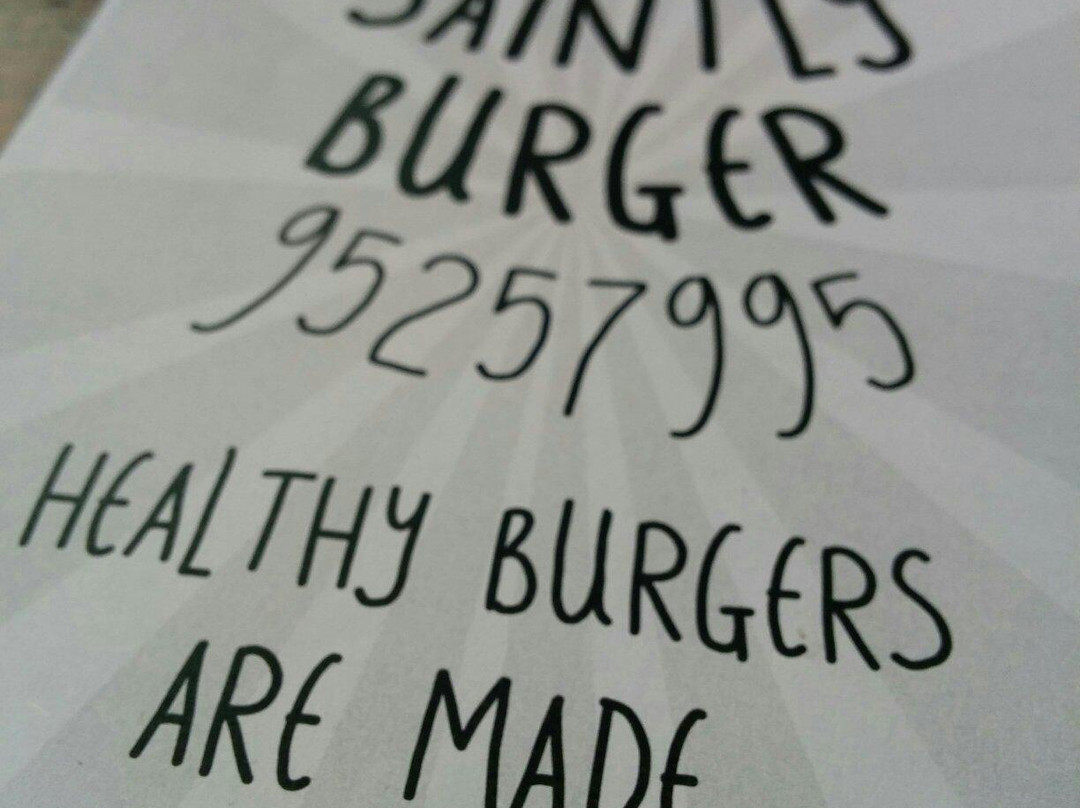 SAINTLY
BURGER
95257995
HEALTHY BURGERS
ARE MADE